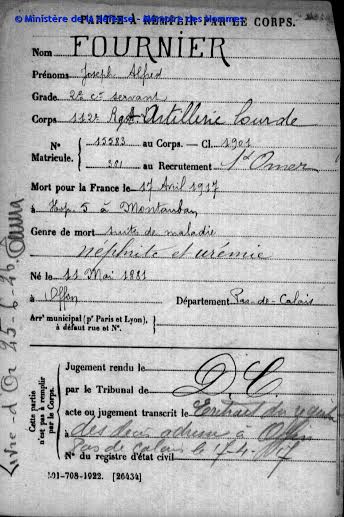 © Ministère de la défense - Mémoire des Hommes
PARTIE À REMPLIR PAR LE CORPS.
Nom FOURNIER
Prénoms Joseph Alfred
Grade 2e ct servant
Corps 112e Rgt Artillerie Lourde
N° Matricule. { 15583 au Corps. — Cl. 1901
321 au Recrutement St Omer
Mort pour la France le 17 Avril 1917
à Hop. 5 à Montauban
Genre de mort suite de maladie
néphrite et urémie
Né le 11 Mai 1881
à Offin Département Pas-de-Calais
Arrt municipal (pr Paris et Lyon), à défaut rue et N°.
Cette partie n'est pas à remplir par le Corps.
Jugement rendu le
par le Tribunal de D C.
acte ou jugement transcrit le Extrait du
des à Offin
Pas de Calais le
N° du registre d'état civil
501-708-1922. [26434]
Livre - d'Or 25-6-